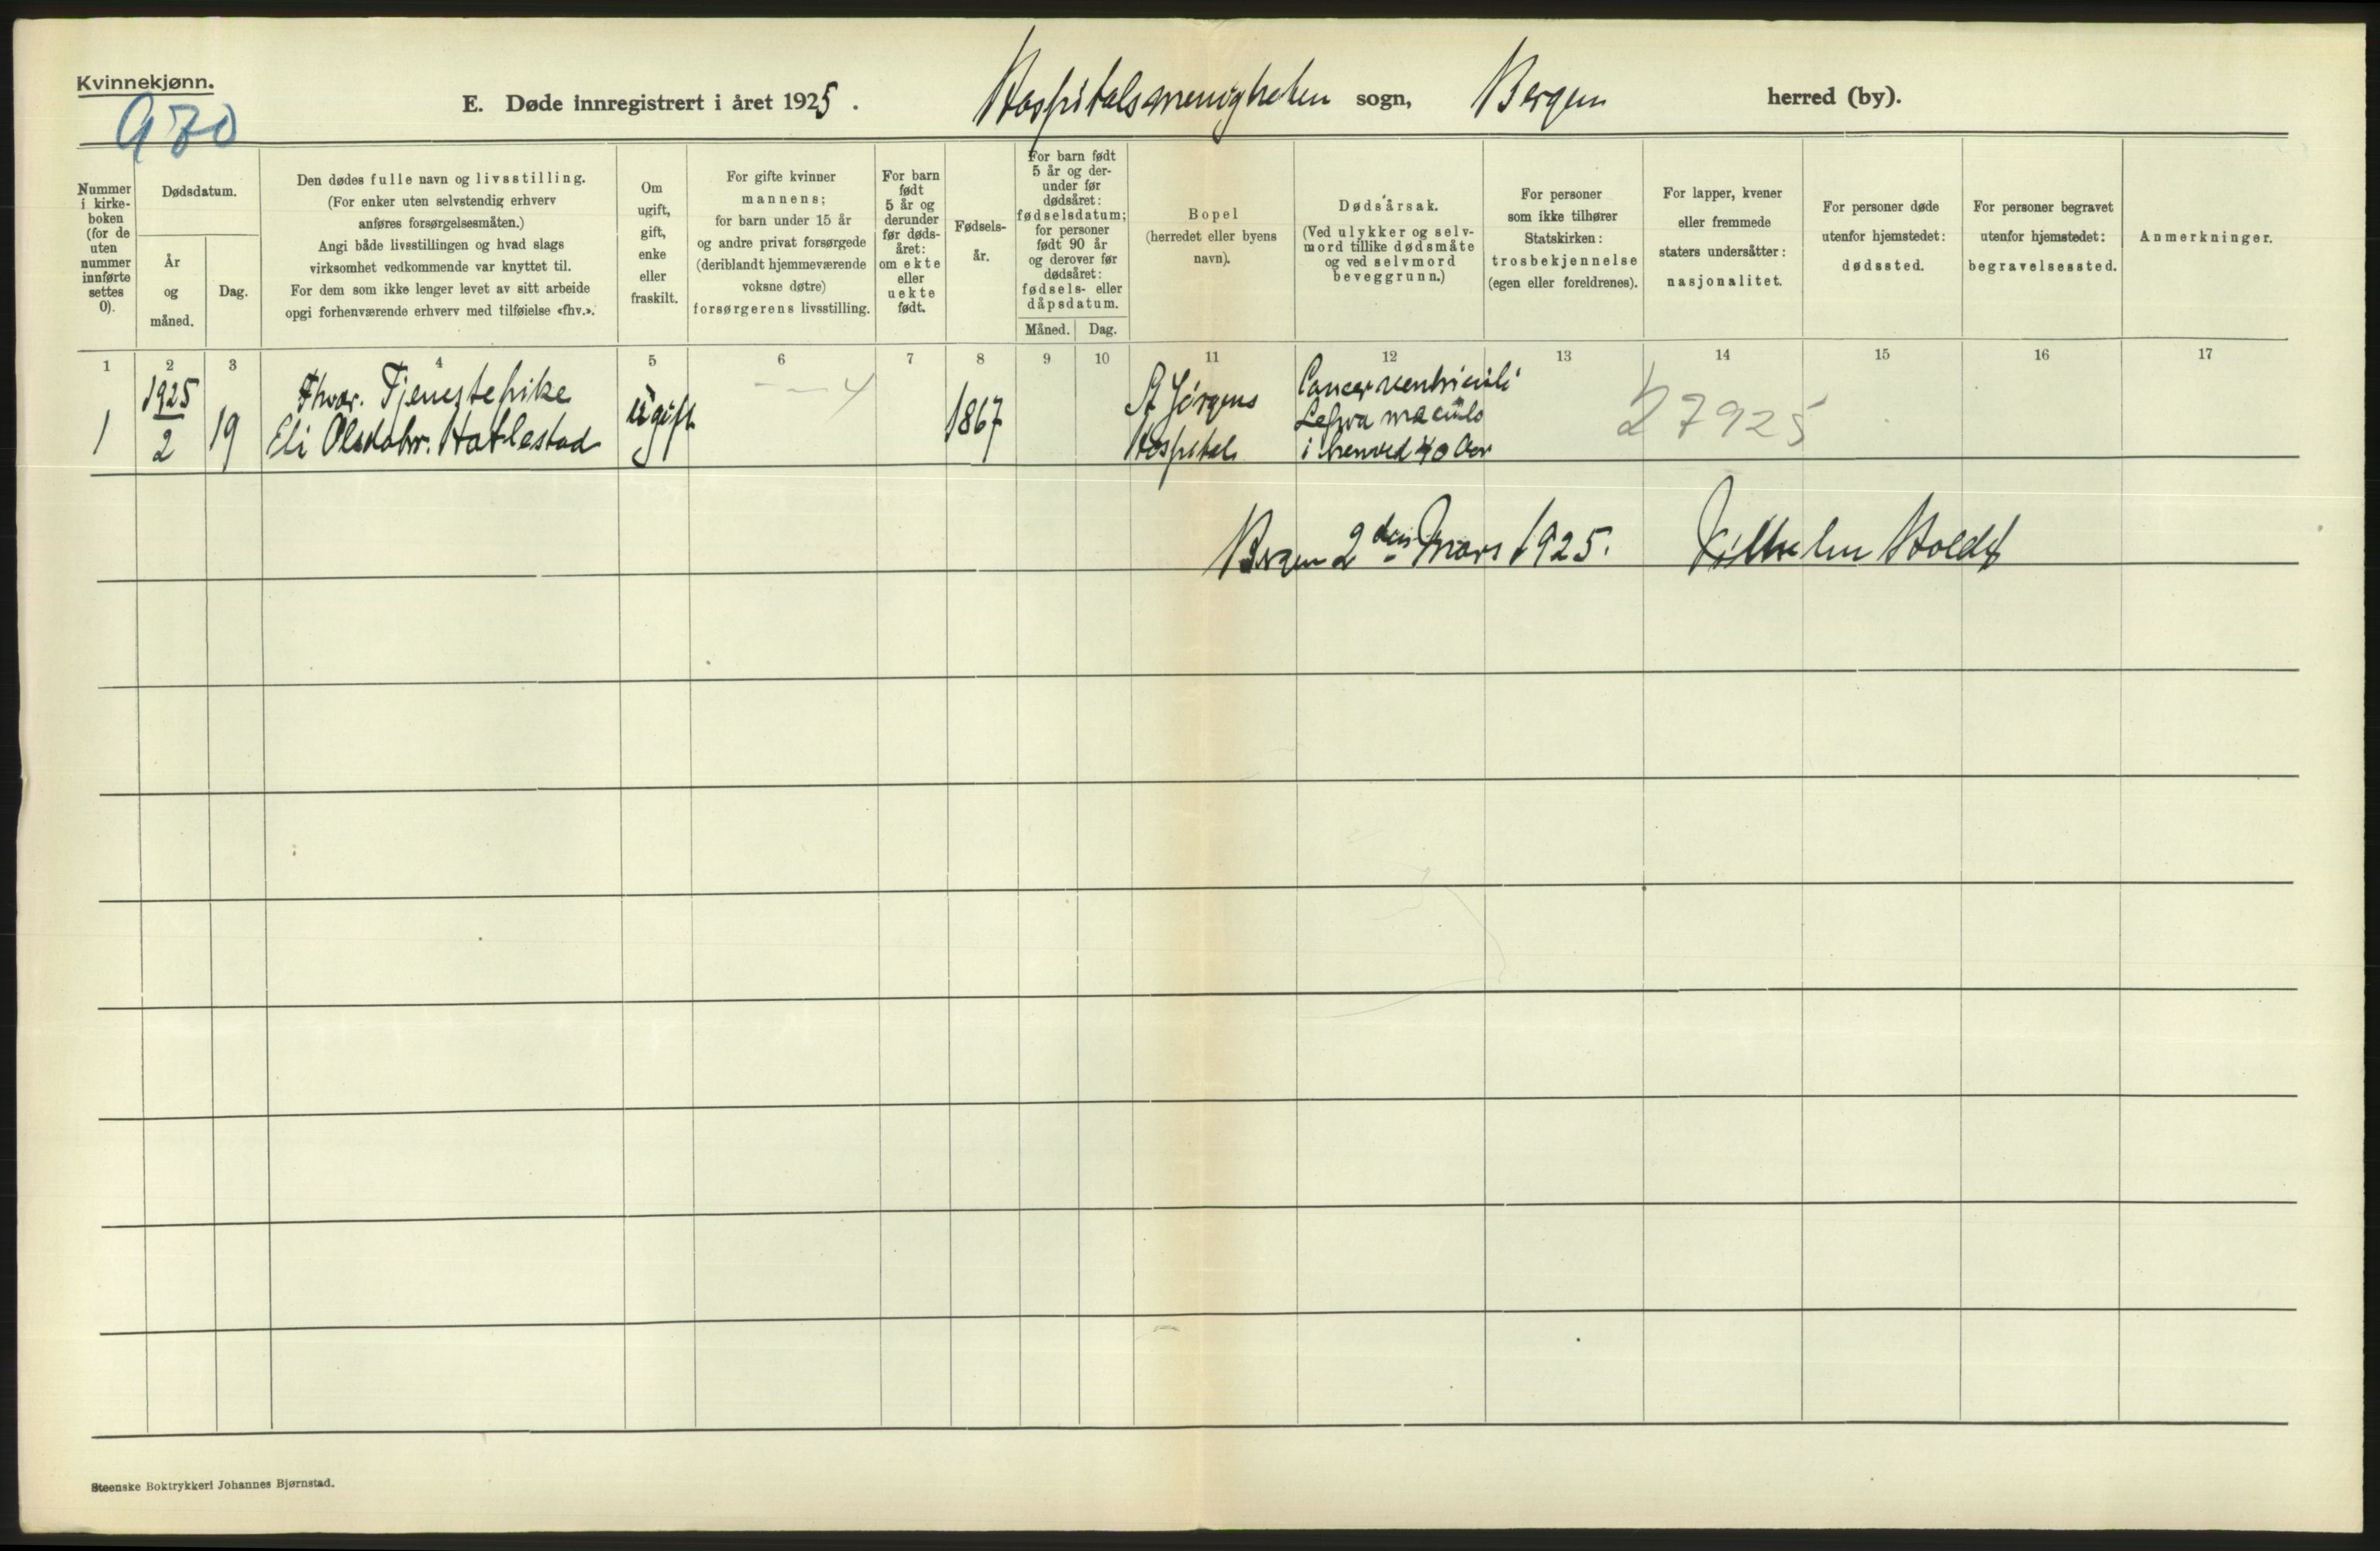 Kvinnekjønn.
970
E. Døde innregistrert i året 1925. Hospitalsmenigheten sogn, Bergen herred (by).
Nummer
i kirke-
boken
(for de
uten
nummer
innførte
settes
0).
Dødsdatum.
År
og
måned.
Dag.
Den dødes fulle navn og livsstilling.
(For enker uten selvstendig erhverv
anføres forsørgelsesmåten.)
Angi både livsstillingen og hvad slags
virksomhet vedkommende var knyttet til.
For dem som ikke lenger levet av sitt arbeide
opgi forhenværende erhverv med tilføielse «fhv.».
Om
ugift,
gift,
enke
eller
fraskilt.
For gifte kvinner
mannens;
for barn under 15 år
og andre privat forsørgede
(deriblandt hjemmeværende
voksne døtre)
forsørgerens livsstilling.
For barn
født
5 år og
derunder
før døds-
året:
om ekte
eller
uekte
født.
Fødsels-
år.
For barn født
5 år og der-
under før
dødsåret:
fødselsdatum;
for personer
født 90 år
og derover før
dødsåret:
fødsels- eller
dåpsdatum.
Måned.
Dag.
Bopel
(herredet eller byens
navn).
Dødsårsak.
(Ved ulykker og selv-
mord tillike dødsmåte
og ved selvmord
beveggrunn.)
For personer
som ikke tilhører
Statskirken:
trosbekjennelse
(egen eller foreldrenes).
For lapper, kvener
eller fremmede
staters undersåtter:
nasjonalitet.
For personer døde
utenfor hjemstedet:
dødssted.
For personer begravet
utenfor hjemstedet:
begravelsessted.
Anmerkninger.
1 2 3 4 5 6 7 8 9 10 11 12 13 14 15 16 17
1
1925
2
19
Fhvær. Tjenestepike
Eli Olsdatter. Hatlestad
ugift
4
1867
St Jørgens
Hospital
Cancer ventriculi
Lepra maculo
i henved 40 Aar
27925
Bergen 2den Mars 1925. Vilhelm Holdt
Steenske Boktrykkeri Johannes Bjørnstad.